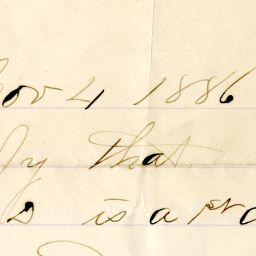 Nov 4 1886
fy that
is a pr